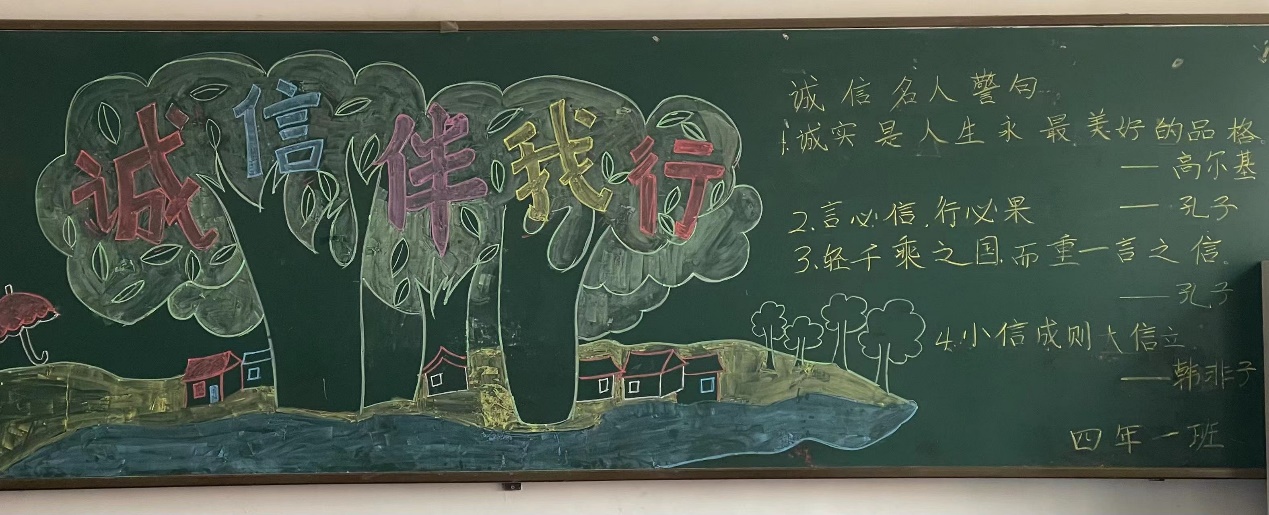 诚信伴我行
诚信名人警句
1.诚实是人生永最美好的品格
——高尔基
2.言必信,行必果
——孔子
3.轻千乘之国,而重一言之信.
——孔子
4.小信成则大信立
——韩非子
四年一班